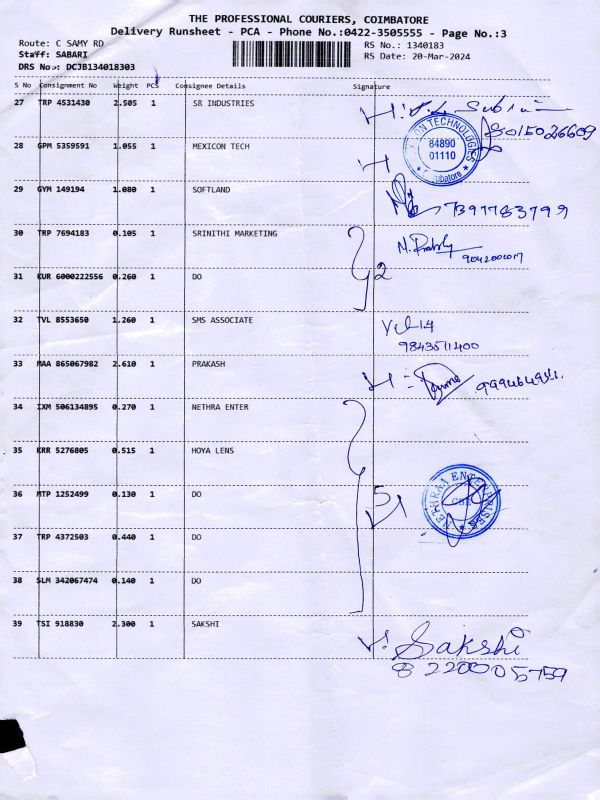 THE PROFESSIONAL COURIERS, COIMBATORE
Delivery Runsheet - PCA - Phone No.:0422-3505555 - Page No.:3
Route: C SAMY RD
RS No.: 1340183
Staff: SABARI
RS Date: 20-Mar-2024
DRS No.: DCJB134018303
S No Consignment No Weight PCS Consignee Details Signature
27 TRP 4531430 2.505 1 SR INDUSTRIES
8015026609
28 GPM 5359591 1.055 1 MEXICON TECH
TECHNOLOGIES
84890
01110
Coimbatore
29 GYM 149194 1.080 1 SOFTLAND
7397783799
30 TRP 7694183 0.105 1 SRINITHI MARKETING
31 KUR 6000222556 0.260 1 DO
2
32 TVL 8553650 1.260 1 SMS ASSOCIATE
9843511400
33 MAA 865067982 2.610 1 PRAKASH
34 IXM 506134895 0.270 1 NETHRA ENTER
35 KRR 5276805 0.515 1 HOYA LENS
36 MTP 1252499 0.130 1 DO
5
NETHRAA ENTERPRISES
37 TRP 4372503 0.440 1 DO
38 SLM 342067474 0.140 1 DO
39 TSI 918830 2.300 1 SAKSHI
Sakshi
8220005759